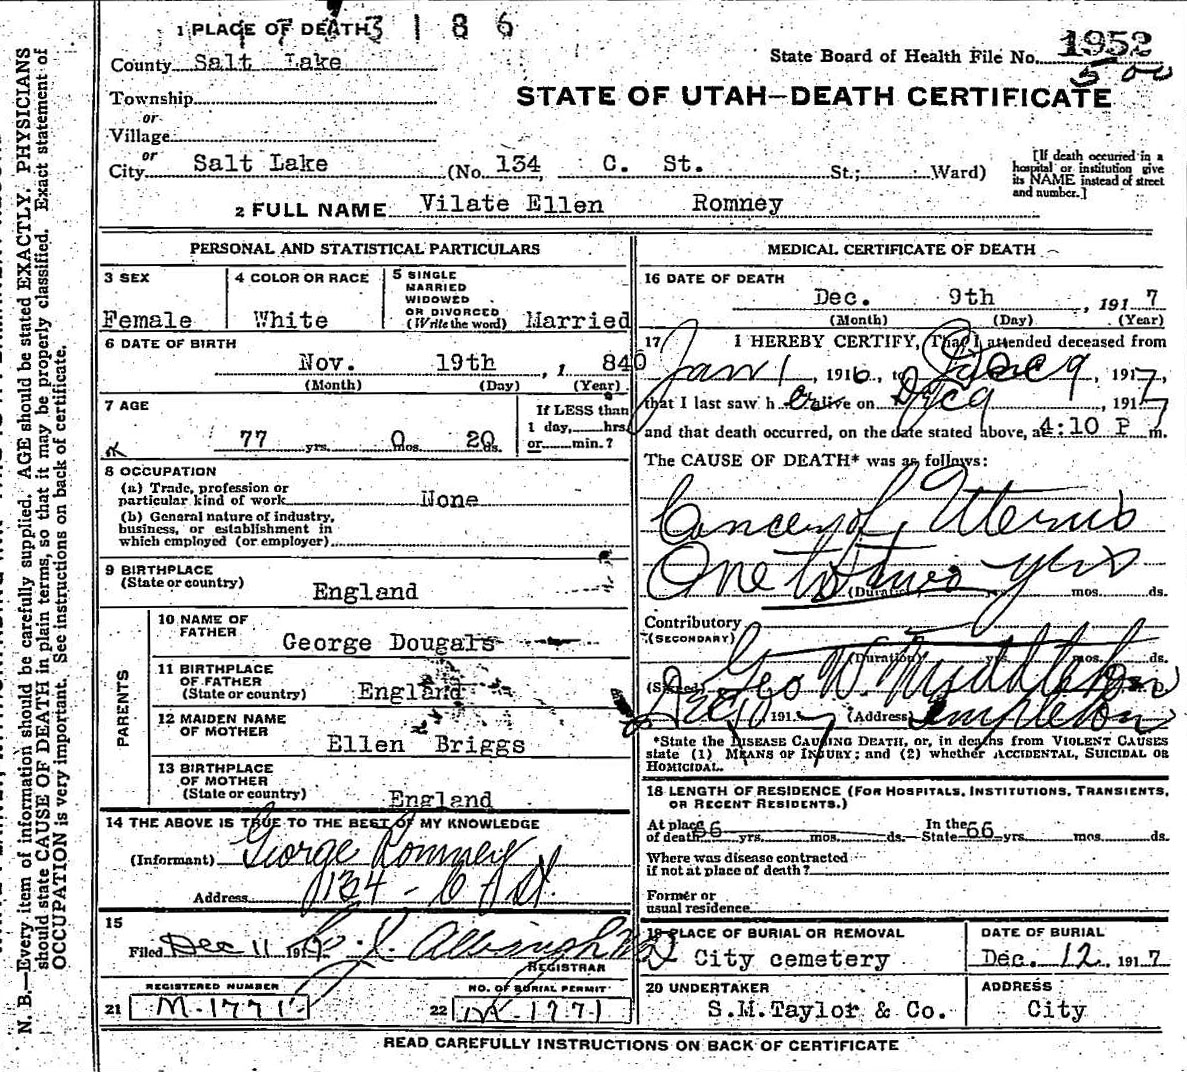 1 PLACE OF DEATH 3 1 8 6
County Salt Lake
State Board of Health File No. 1952
Township
5 00
or
STATE OF UTAH—DEATH CERTIFICATE
Village
or
City Salt Lake (No. 134, C. St. St.; Ward)
[If death occurred in a hospital or institution give its NAME instead of street and number.]
2 FULL NAME Vilate Ellen Romney
N. B.—Every item of information should be carefully supplied. AGE should be stated EXACTLY. PHYSICIANS
should state CAUSE OF DEATH in plain terms, so that it may be properly classified. Exact statement of
OCCUPATION is very important. See instructions on back of certificate.
PERSONAL AND STATISTICAL PARTICULARS
3 SEX
Female
4 COLOR OR RACE
White
5 SINGLE
MARRIED
WIDOWED
OR DIVORCED
(Write the word) Married
6 DATE OF BIRTH
Nov. 19th, 1 840
(Month) (Day) (Year)
7 AGE
77 yrs. 0 mos. 20 ds.
If LESS than
1 day, hrs.
or min.?
8 OCCUPATION
(a) Trade, profession or
particular kind of work None
(b) General nature of industry,
business, or establishment in
which employed (or employer)
9 BIRTHPLACE
(State or country) England
PARENTS
10 NAME OF
FATHER George Dougals
11 BIRTHPLACE
OF FATHER
(State or country) England
12 MAIDEN NAME
OF MOTHER Ellen Briggs
13 BIRTHPLACE
OF MOTHER
(State or country) England
14 THE ABOVE IS TRUE TO THE BEST OF MY KNOWLEDGE
(Informant) George Romney
Address 134 - C St.
15
Filed Dec 11 1917
REGISTRAR
REGISTERED NUMBER
21 M-1771
NO. OF BURIAL PERMIT
22 M-1771
MEDICAL CERTIFICATE OF DEATH
16 DATE OF DEATH
Dec. 9th, 1917
(Month) (Day) (Year)
17 I HEREBY CERTIFY, That I attended deceased from
Jan 1, 1916, to Dec 9, 1917,
that I last saw her alive on Dec 9, 1917
and that death occurred, on the date stated above, at 4:10 P m.
The CAUSE OF DEATH* was as follows:
Cancer of Uterus
One to two yrs
(Duration) yrs. mos. ds.
Contributory
(SECONDARY)
(Duration) yrs. mos. ds.
(Signed) Geo W. Middleton
Dec 10, 1917 (Address) Templeton
*State the DISEASE CAUSING DEATH, or, in deaths from VIOLENT CAUSES
state (1) MEANS OF INJURY; and (2) whether ACCIDENTAL, SUICIDAL OR
HOMICIDAL.
18 LENGTH OF RESIDENCE (FOR HOSPITALS, INSTITUTIONS, TRANSIENTS,
OR RECENT RESIDENTS.)
At place
of death 66 yrs. mos. ds. In the State 66 yrs. mos. ds.
Where was disease contracted
if not at place of death?
Former or
usual residence
19 PLACE OF BURIAL OR REMOVAL
City cemetery
DATE OF BURIAL
Dec. 12, 1917
20 UNDERTAKER
S.M.Taylor & Co.
ADDRESS
City
READ CAREFULLY INSTRUCTIONS ON BACK OF CERTIFICATE